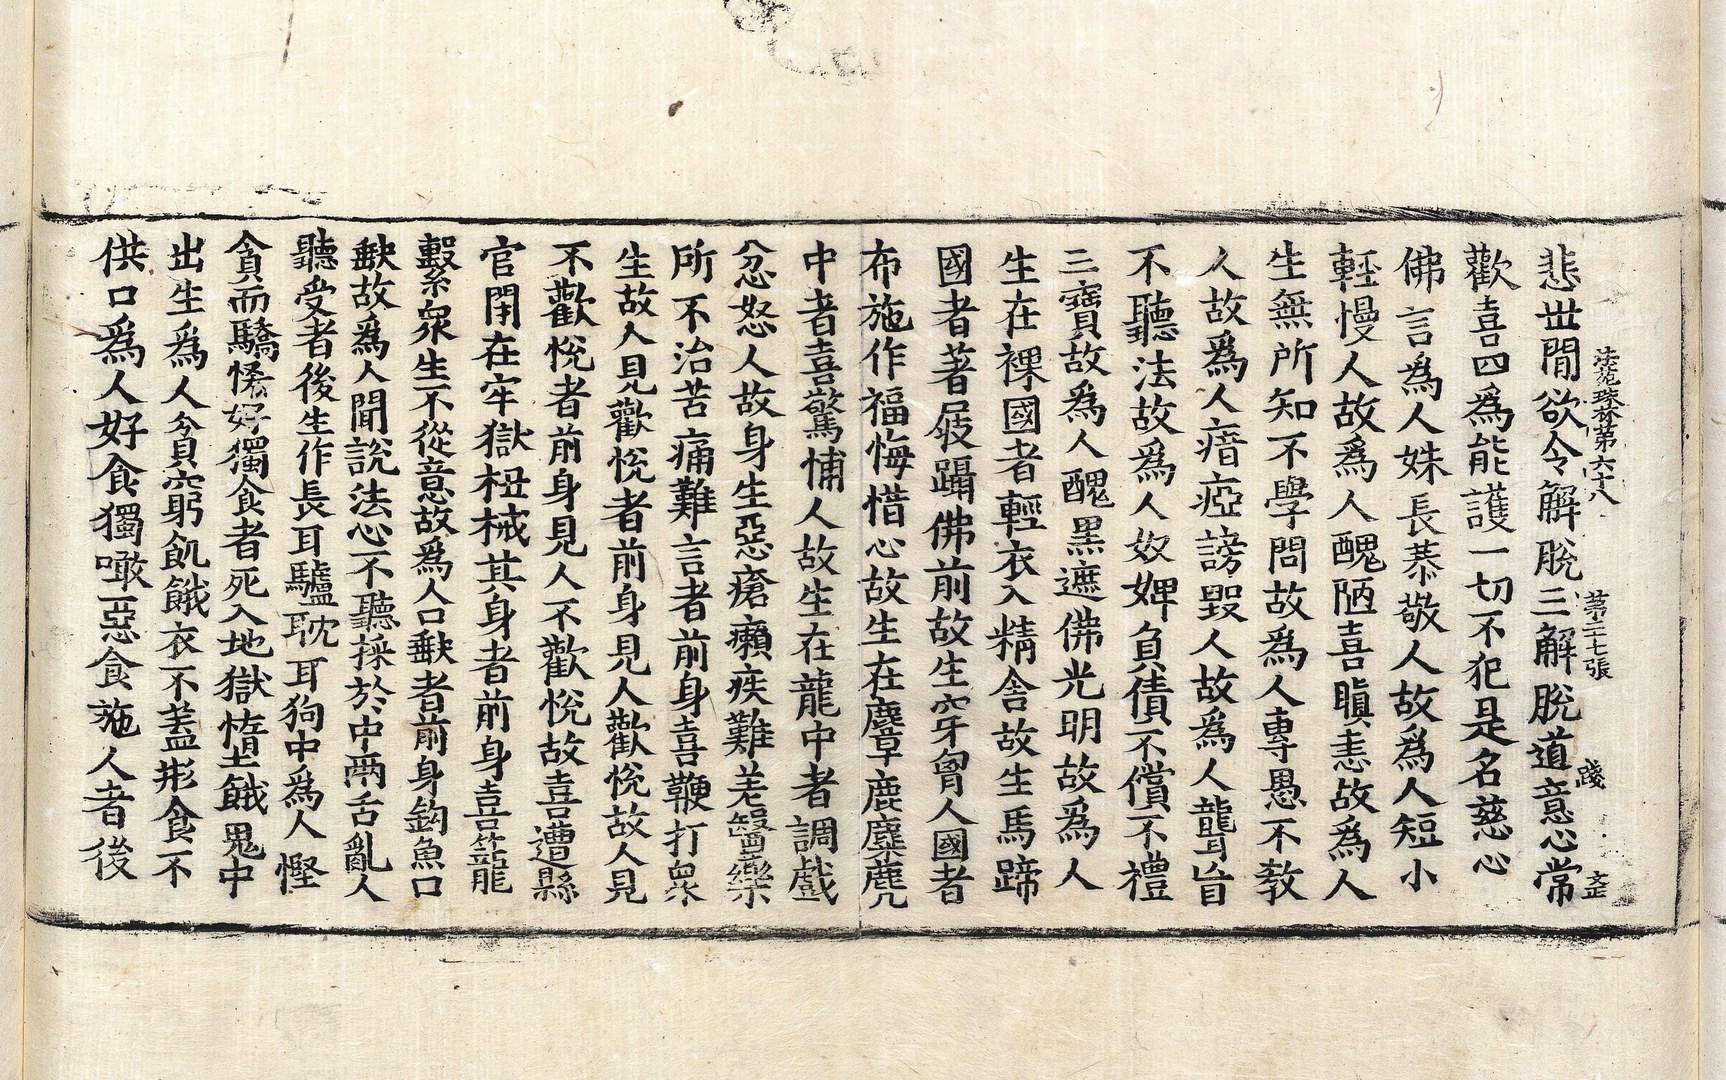 法苑珠林第六十八 第二十七張 㦮 疋
悲世閒欲令解脫三解脫道意心常
歡喜四爲能護一切不犯是名慈心
佛言爲人姝長恭敬人故爲人短小
輕慢人故爲人醜陋喜瞋恚故爲人
生無所知不學問故爲人專愚不教
人故爲人瘖瘂謗毀人故爲人聾盲
不聽法故爲人奴婢負債不償不禮
三寶故爲人醜黑遮佛光明故爲人
生在裸國者輕衣入精舍故生馬蹄
國者著屐躡佛前故生穿胷人國者
布施作福悔惜心故生在麞鹿麈麂
中者喜驚怖人故生在龍中者調戲
忿怒人故身生惡瘡癩疾難差醫藥
所不治苦痛難言者前身喜鞭打衆
生故人見歡悅者前身見人歡悅故人見
不歡悅者前身見人不歡悅故喜遭縣
官閇在牢獄杻械其身者前身喜籠
繫衆生不從意故爲人口䶧者前身鈎魚口
䶧故爲人聞說法心不聽採於中兩舌亂人
聽受者後生作長耳驢耽耳狗中爲人慳
貪而驕悋好獨食者死入地獄墯餓鬼中
出生爲人貧窮飢餓衣不盖形食不
供口爲人好食獨噉惡食施人者後